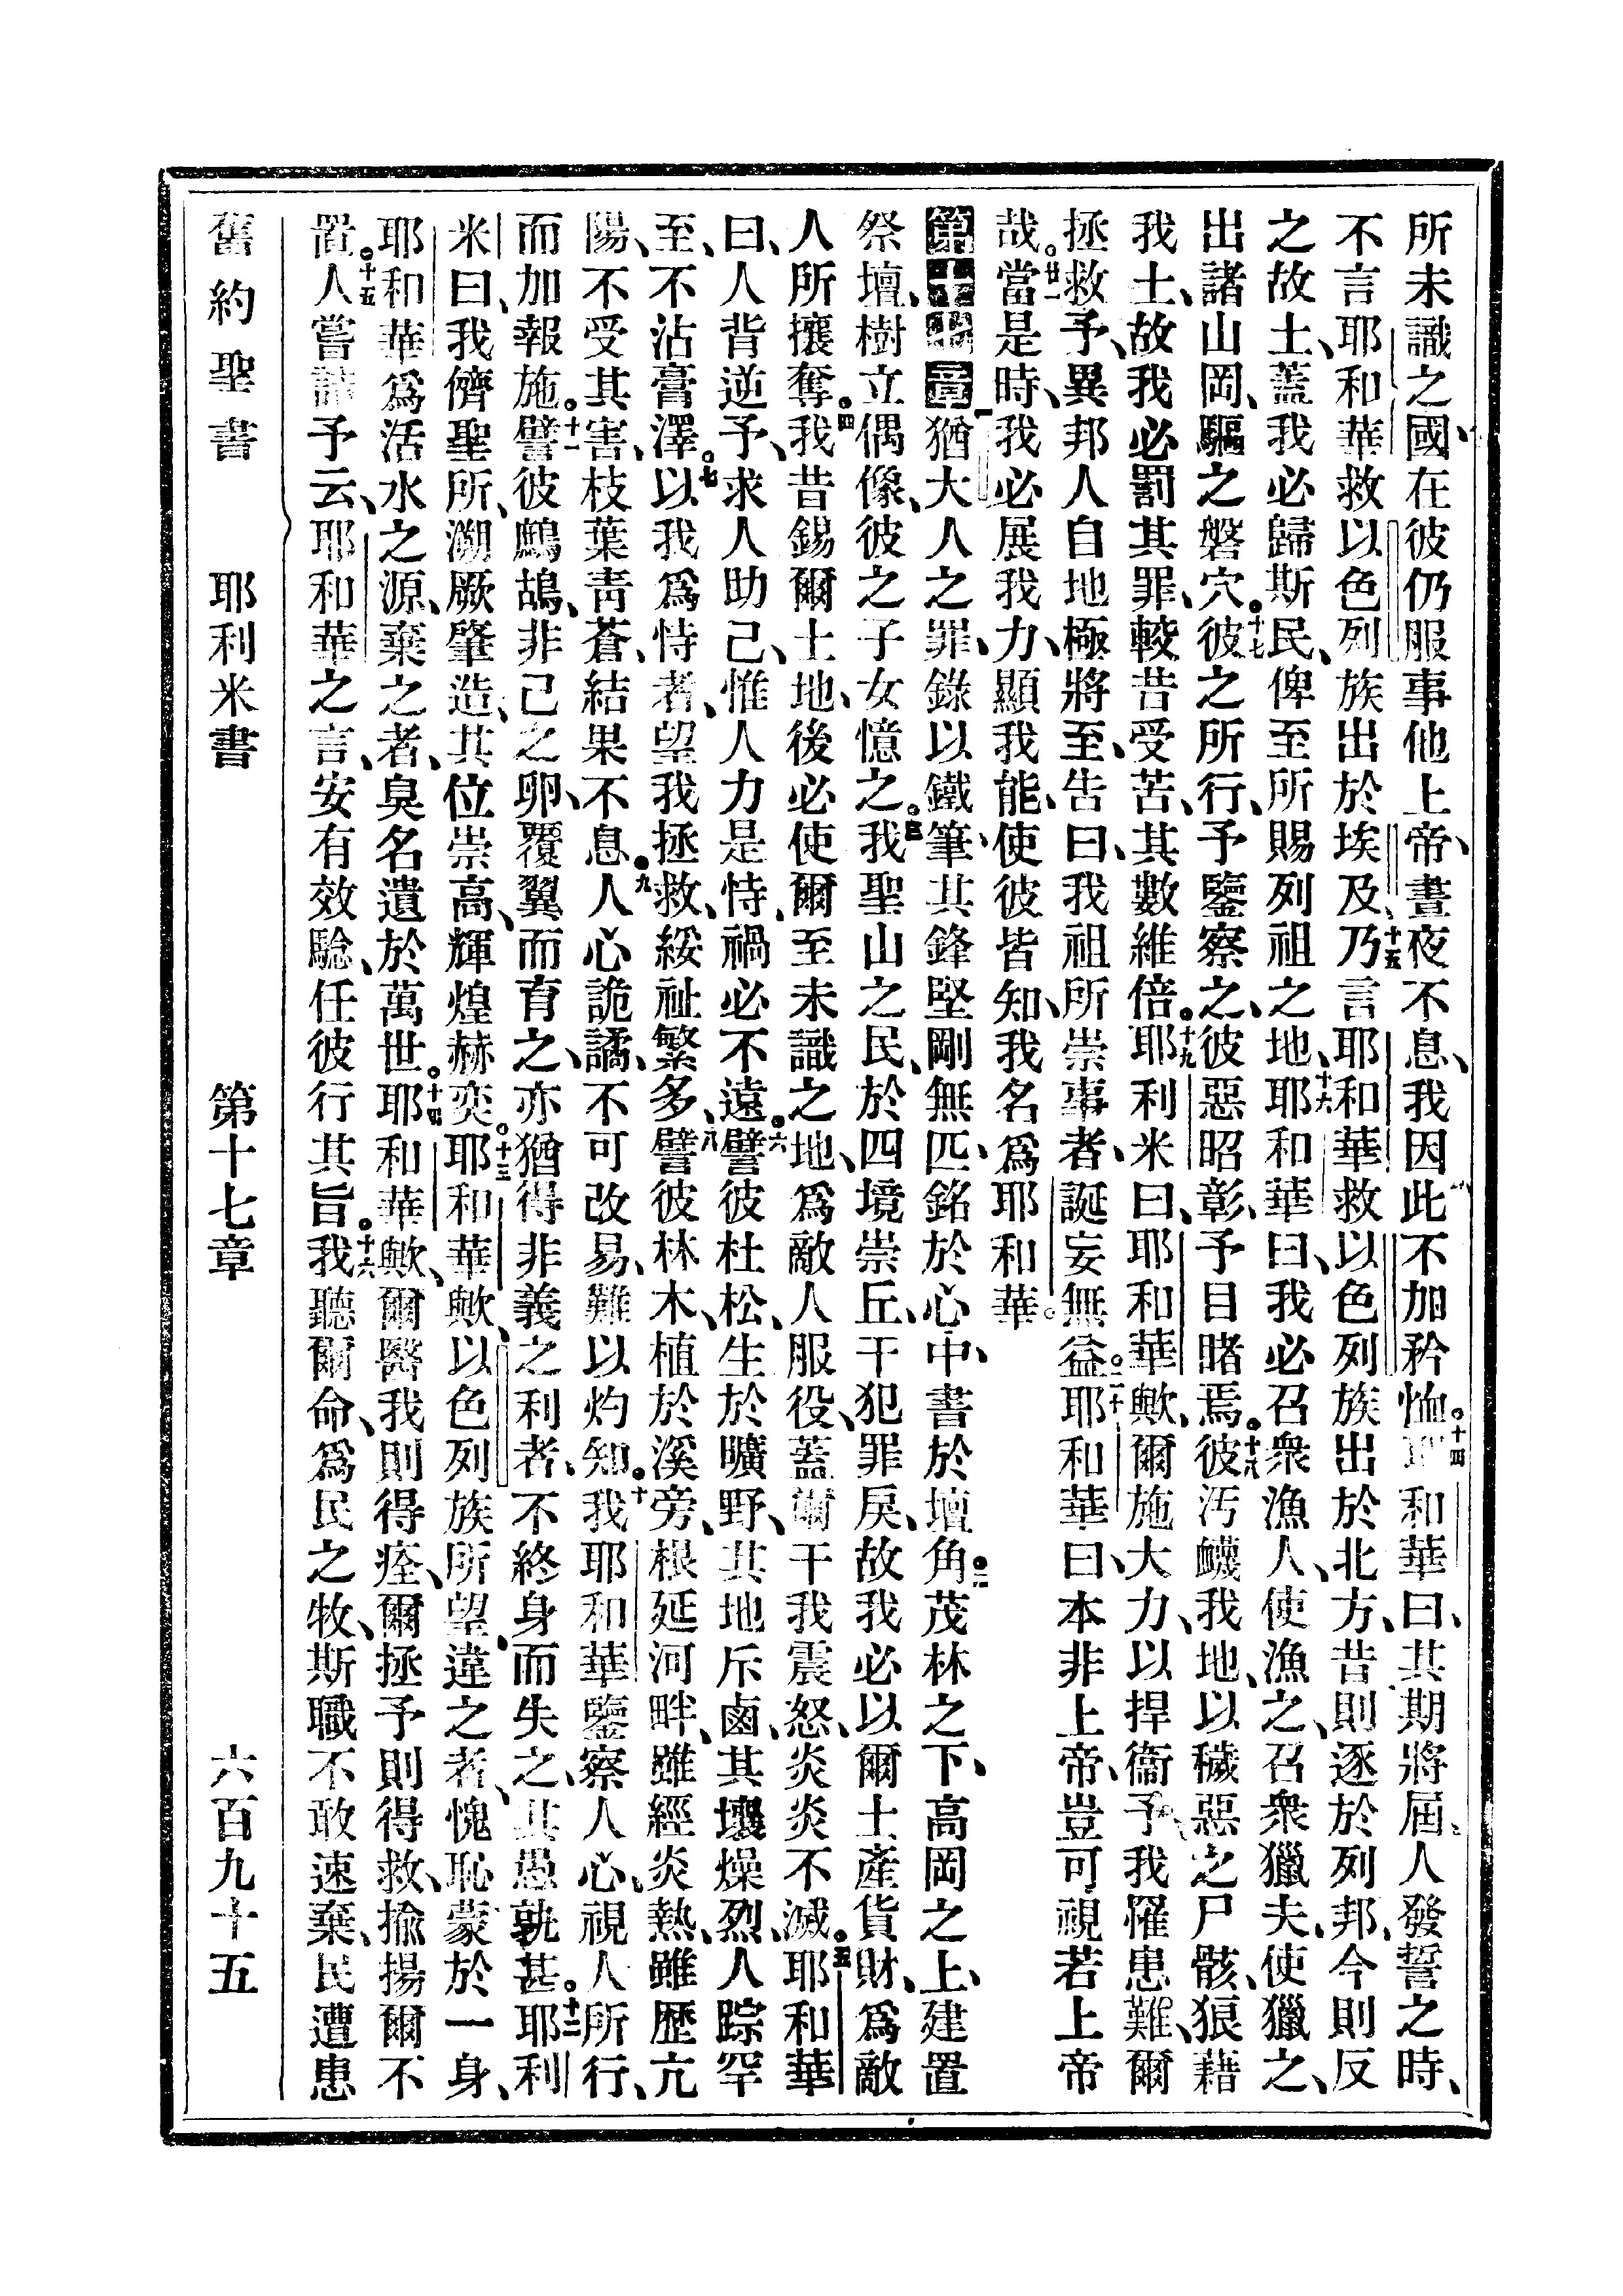 所未識之國、在彼仍服事他上帝、晝夜不息、我因此不加矜恤。十四耶和華曰、其期將屆、人發誓之時、
不言耶和華救以色列族出於埃及、十五乃言耶和華救以色列族出於北方、昔則逐於列邦、今則反
之故土、蓋我必歸斯民、俾至所賜列祖之地、十六耶和華曰、我必召衆漁人、使漁之、召衆獵夫、使獵之、
出諸山岡、驅之磐穴。十七彼之所行、予鑒察之、彼惡昭彰、予目睹焉。十八彼汚衊我地、以穢惡之尸骸、狼藉
我土、故我必罰其罪、較昔受苦、其數維倍。十九耶利米曰、耶和華歟、爾施大力、以捍衞予、我罹患難、爾
拯救予、異邦人自地極將至、告曰、我祖所崇事者、誕妄無益。二十耶和華曰、本非上帝、豈可視若上帝
哉。廿一當是時、我必展我力、顯我能、使彼皆知、我名爲耶和華。
第十七章 一猶大人之罪、錄以鐵筆、其鋒堅剛無匹、銘於心中、書於壇角。二茂林之下、高岡之上、建置
祭壇、樹立偶像、彼之子女憶之。三我聖山之民、於四境崇丘、干犯罪戾、故我必以爾土產貨財、爲敵
人所攘奪。四我昔錫爾土地、後必使爾至未識之地、爲敵人服役、蓋爾干我震怒、炎炎不滅。五耶和華
曰、人背逆予、求人助己、惟人力是恃、禍必不遠。六譬彼杜松、生於曠野、其地斥鹵、其壤燥烈、人踪罕
至、不沾膏澤。七以我爲恃者、望我拯救、綏祉繁多、八譬彼林木、植於溪旁、根延河畔、雖經炎熱、雖歷亢
陽、不受其害、枝葉青蒼、結果不息。九人心詭譎、不可改易、難以灼知。十我耶和華鑒察人心、視人所行、
而加報施。十一譬彼鷓鴣、非己之卵、覆翼而育之、亦猶得非義之利者、不終身而失之、其愚孰甚。十二耶利
米曰、我儕聖所、溯厥肇造、其位崇高、輝煌赫奕。十三耶和華歟、以色列族所望、違之者、愧恥蒙於一身、
耶和華爲活水之源、棄之者、臭名遺於萬世。十四耶和華歟、爾醫我則得痊、爾拯予則得救、揄揚爾不
置。十五人嘗譏予云、耶和華之言、安有效騐、任彼行其旨。十六我聽爾命、爲民之牧、斯職不敢速棄、民遭患
舊約聖書 耶利米書 第十七章 六百九十五